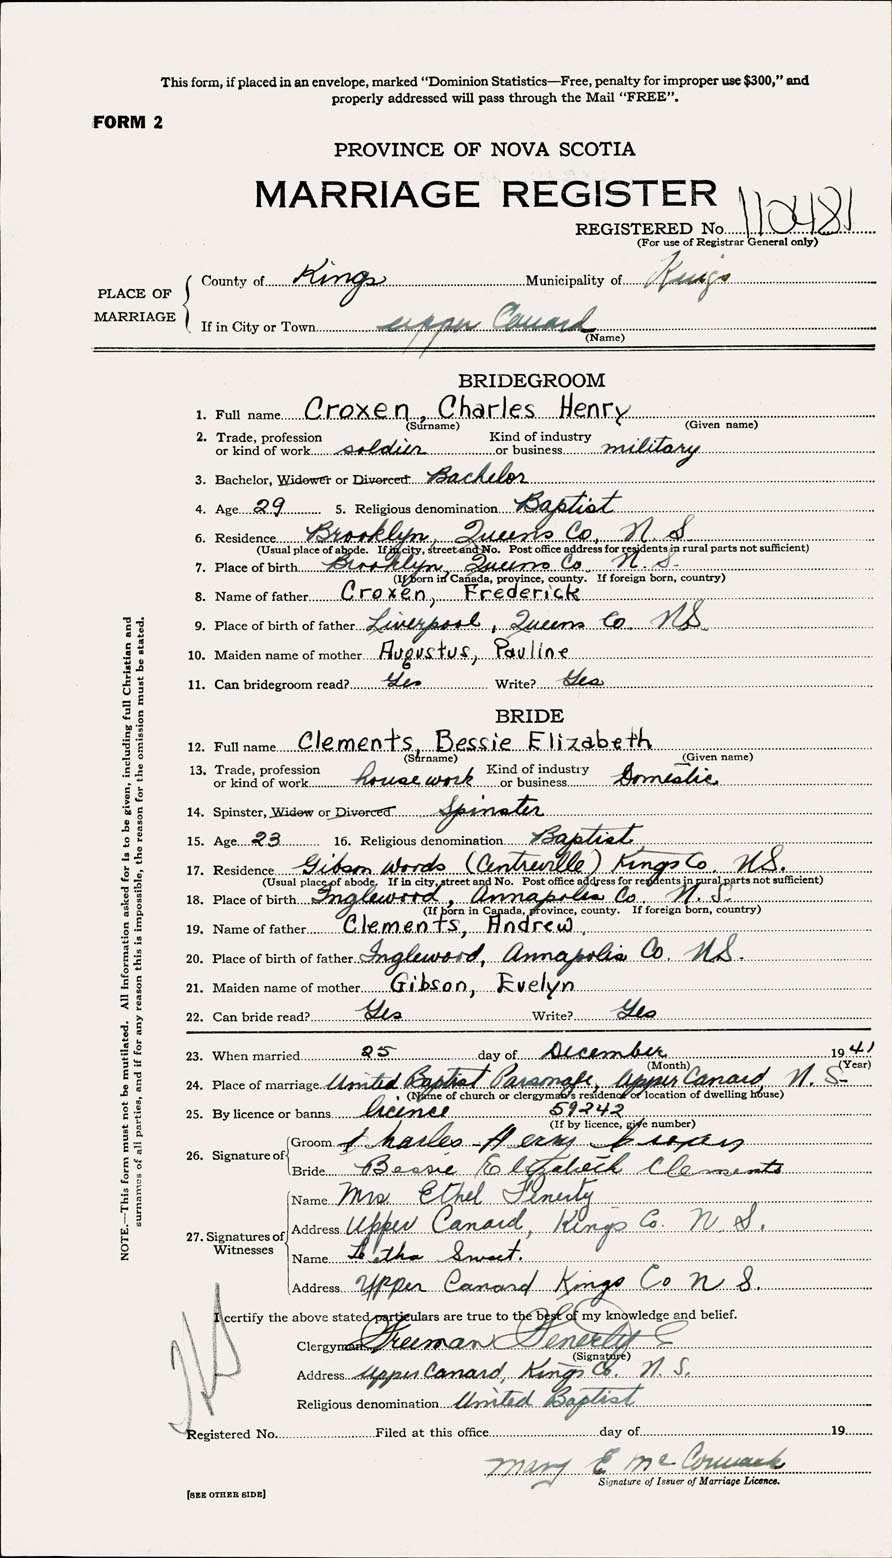 This form, if placed in an envelope, marked “Dominion Statistics—Free, penalty for improper use $300,” and
properly addressed will pass through the Mail “FREE”.
FORM 2
PROVINCE OF NOVA SCOTIA
MARRIAGE REGISTER
REGISTERED No. 110481
(For use of Registrar General only)
PLACE OF MARRIAGE
County of Kings Municipality of Kings
If in City or Town upper Canard
(Name)
BRIDEGROOM
1. Full name Croxen, Charles Henry
(Surname) (Given name)
2. Trade, profession or kind of work soldier Kind of industry or business military
3. Bachelor, Widower or Divorced Bachelor
4. Age 29 5. Religious denomination Baptist
6. Residence Brooklyn, Queens Co, N. S
(Usual place of abode. If in city, street and No. Post office address for residents in rural parts not sufficient)
7. Place of birth Brooklyn, Queens Co. N. S.
(If born in Canada, province, county. If foreign born, country)
8. Name of father Croxen, Frederick
9. Place of birth of father Liverpool, Queens Co. N.S.
10. Maiden name of mother Augustus, Pauline
11. Can bridegroom read? Yes Write? Yes
BRIDE
12. Full name Clements, Bessie Elizabeth
(Surname) (Given name)
13. Trade, profession or kind of work house work Kind of industry or business Domestic
14. Spinster, Widow or Divorced Spinster
15. Age 23 16. Religious denomination Baptist
17. Residence Gibson Woods (Centreville) Kings Co. N.S.
(Usual place of abode. If in city, street and No. Post office address for residents in rural parts not sufficient)
18. Place of birth Inglewood, Annapolis Co N. S.
(If born in Canada, province, county. If foreign born, country)
19. Name of father Clements, Andrew
20. Place of birth of father Inglewood, Annapolis Co. N.S.
21. Maiden name of mother Gibson, Evelyn
22. Can bride read? Yes Write? Yes
23. When married 25 day of December 1941
(Month) (Year)
24. Place of marriage United Baptist Parsonage, Upper Canard, N. S.
(Name of church or clergyman's residence or location of dwelling house)
25. By licence or banns licence 59242
(If by licence, give number)
26. Signature of Groom Charles Henry Croxen
Bride Bessie Elizabeth Clements
27. Signatures of Witnesses
Name Mrs Ethel Fenerty
Address Upper Canard, Kings Co. N. S.
Name Letha Sweet.
Address Upper Canard Kings Co N S.
I certify the above stated particulars are true to the best of my knowledge and belief.
Clergyman Freeman Fenerty
(Signature)
Address upper Canard, Kings Co. N. S.
Religious denomination United Baptist
Registered No. Filed at this office day of 19
Mary E McCormack
Signature of Issuer of Marriage Licence.
[SEE OTHER SIDE]
NOTE.—This form must not be mutilated. All information asked for is to be given, including full Christian and
surnames of all parties, and if for any reason this is impossible, the reason for the omission must be stated.